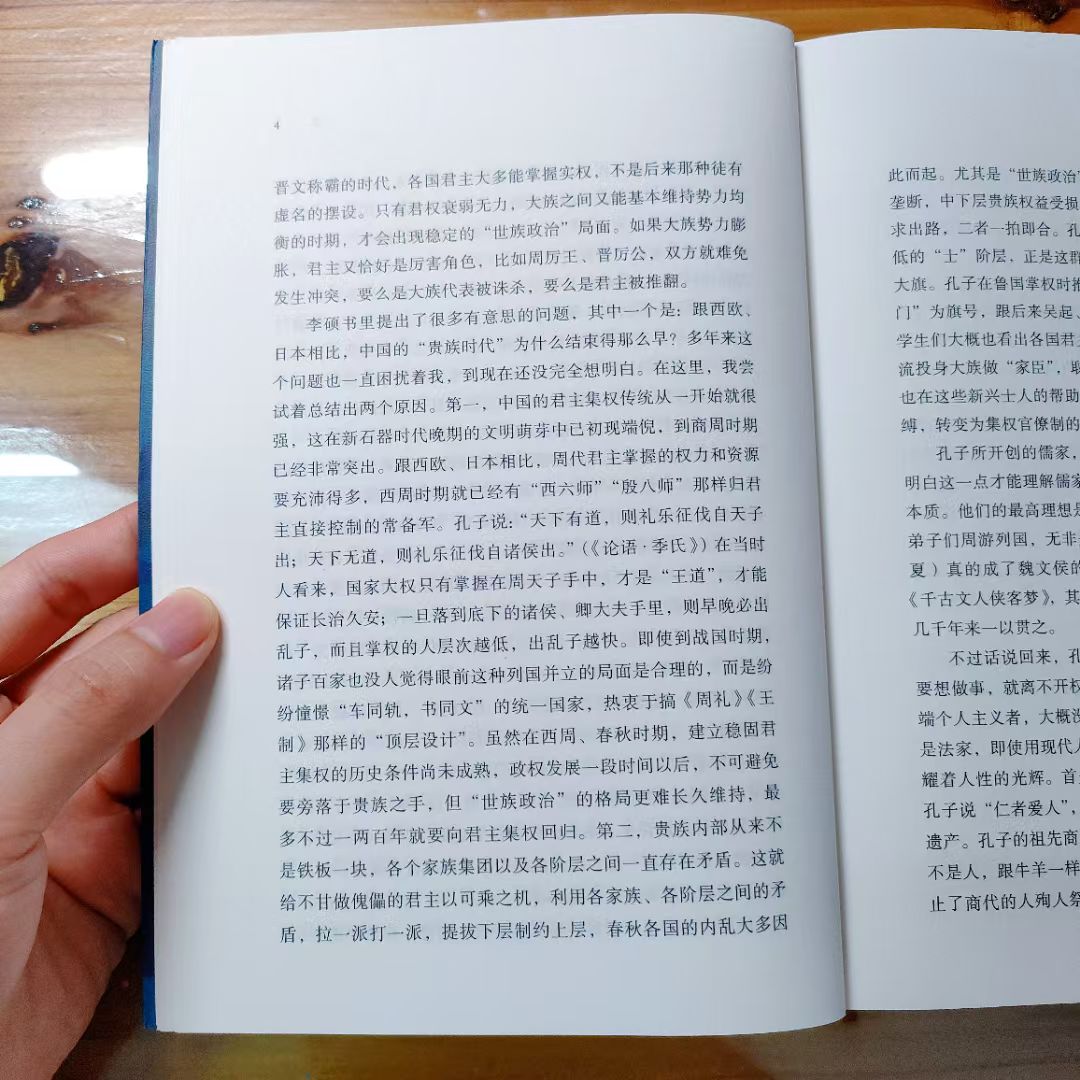 4
晋文称霸的时代，各国君主大多能掌握实权，不是后来那种徒有
虚名的摆设。只有君权衰弱无力，大族之间又能基本维持势力均
衡的时期，才会出现稳定的“世族政治”局面。如果大族势力膨
胀，君主又恰好是厉害角色，比如周厉王、晋厉公，双方就难免
发生冲突，要么是大族代表被诛杀，要么是君主被推翻。
李硕书里提出了很多有意思的问题，其中一个是：跟西欧、
日本相比，中国的“贵族时代”为什么结束得那么早？多年来这
个问题也一直困扰着我，到现在还没完全想明白。在这里，我尝
试着总结出两个原因。第一，中国的君主集权传统从一开始就很
强，这在新石器时代晚期的文明萌芽中已初现端倪，到商周时期
已经非常突出。跟西欧、日本相比，周代君主掌握的权力和资源
要充沛得多，西周时期就已经有“西六师”“殷八师”那样归君
主直接控制的常备军。孔子说：“天下有道，则礼乐征伐自天子
出；天下无道，则礼乐征伐自诸侯出。”（《论语·季氏》）在当时
人看来，国家大权只有掌握在周天子手中，才是“王道”，才能
保证长治久安；一旦落到底下的诸侯、卿大夫手里，则早晚必出
乱子，而且掌权的人层次越低，出乱子越快。即使到战国时期，
诸子百家也没人觉得眼前这种列国并立的局面是合理的，而是纷
纷憧憬“车同轨，书同文”的统一国家，热衷于搞《周礼》《王
制》那样的“顶层设计”。虽然在西周、春秋时期，建立稳固君
主集权的历史条件尚未成熟，政权发展一段时间以后，不可避免
要旁落于贵族之手，但“世族政治”的格局更难长久维持，最
多不过一两百年就要向君主集权回归。第二，贵族内部从来不
是铁板一块，各个家族集团以及各阶层之间一直存在矛盾。这就
给不甘做傀儡的君主以可乘之机，利用各家族、各阶层之间的矛
盾，拉一派打一派，提拔下层制约上层，春秋各国的内乱大多因
此而起。尤其是“世族政治”
垄断，中下层贵族权益受损
求出路，二者一拍即合。孔
低的“士”阶层，正是这群
大旗。孔子在鲁国掌权时推
门”为旗号，跟后来吴起、
学生们大概也看出各国君主
流投身大族做“家臣”，取
也在这些新兴士人的帮助
缚，转变为集权官僚制的
孔子所开创的儒家，
明白这一点才能理解儒家
本质。他们的最高理想是
弟子们周游列国，无非
夏）真的成了魏文侯的
《千古文人侠客梦》，其
几千年来一以贯之。
不过话说回来，孔
要想做事，就离不开权
端个人主义者，大概没
是法家，即使用现代人
耀着人性的光辉。首
孔子说“仁者爱人”，
遗产。孔子的祖先商
不是人，跟牛羊一样
止了商代的人殉人祭